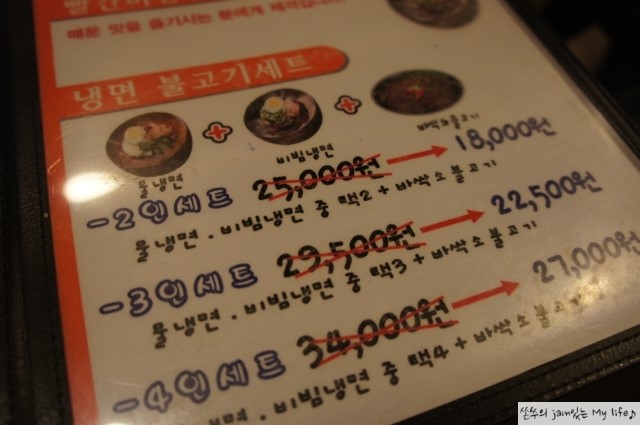 매운 맛을 즐기시는 분에게 제격입니다!
냉면 불고기세트
물냉면
비빔냉면
바싹소불고기
-2인세트 25,000원 18,000원
물냉면 . 비빔냉면 중 택2 + 바싹소불고기
-3인세트 29,500원 22,500원
물냉면 . 비빔냉면 중 택3 + 바싹소불고기
-4인세트 34,000원 27,000원
물냉면 . 비빔냉면 중 택4 + 바싹소불고기
쏜쑤의 jam있는 My life♪